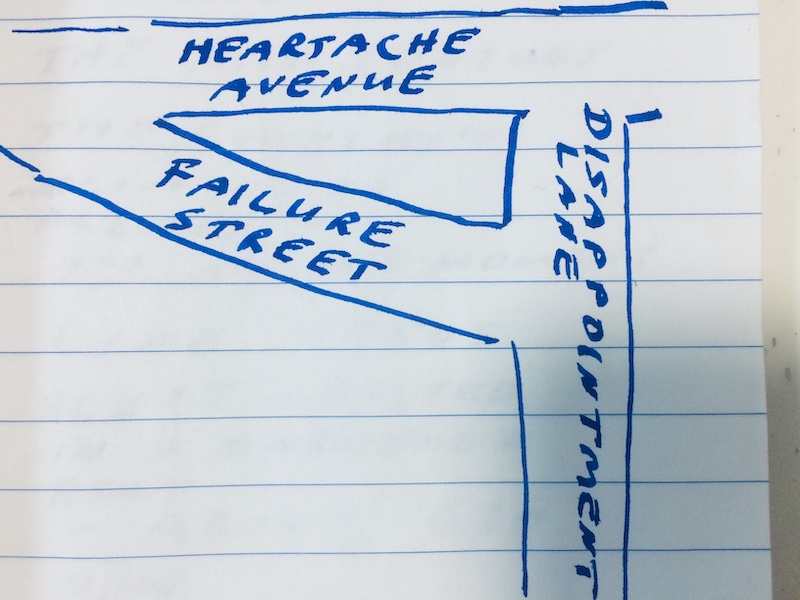 HEARTACHE
AVENUE
FAILURE
STREET
DISAPPOINTMENT
LANE